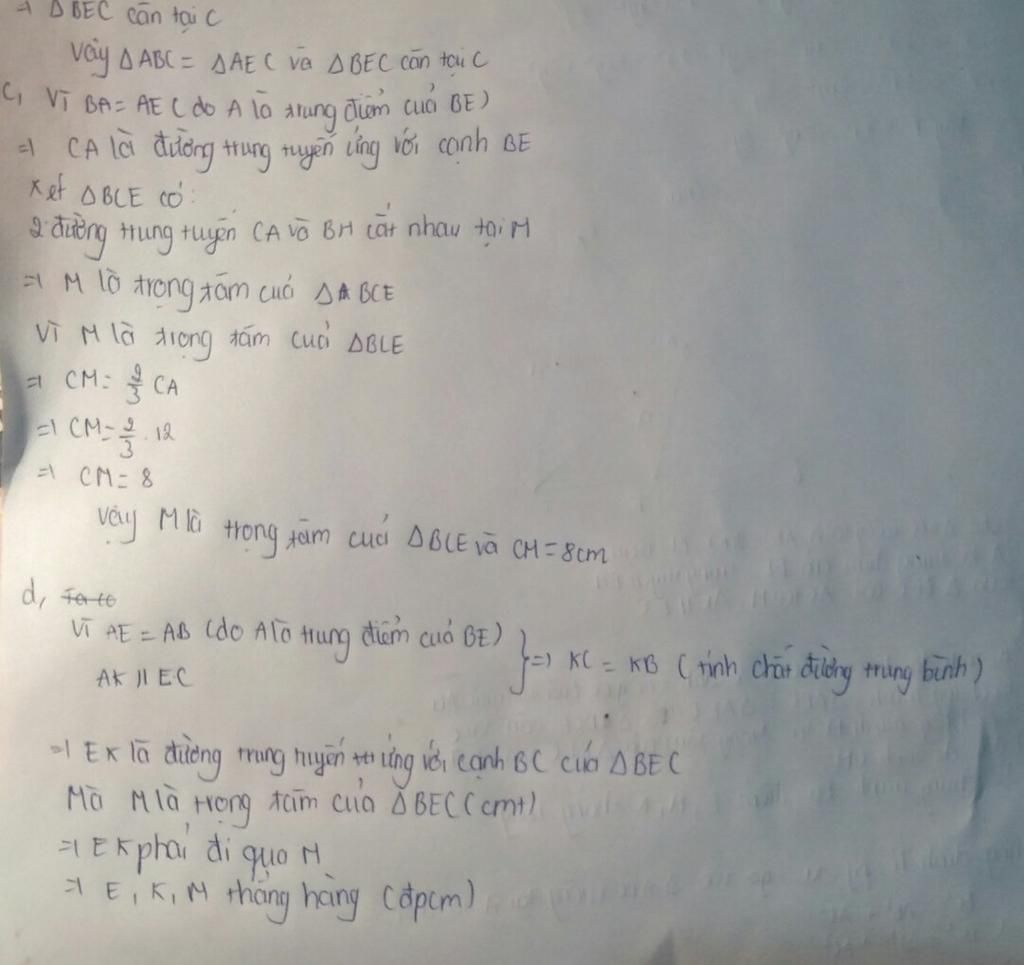 ⇒ ΔBEC cân tại C
Vậy ΔABC = ΔAEC và ΔBEC cân tại C
C, Vì BA = AE (do A là trung điểm của BE)
⇒ CA là đường trung tuyến ứng với cạnh BE
Xét ΔBCE có:
2 đường trung tuyến CA và BH cắt nhau tại M
⇒ M là trọng tâm của ΔBCE
Vì M là trọng tâm của ΔBCE
⇒ CM = 2/3 CA
⇒ CM = 2/3 . 12
⇒ CM = 8
Vậy M là trọng tâm của ΔBCE và CM = 8cm
d,
Vì AE = AB (do A là trung điểm của BE)
AK // EC
} ⇒ KC = KB (tính chất đường trung bình)
⇒ EK là đường trung tuyến ứng với cạnh BC của ΔBEC
Mà M là trọng tâm của ΔBEC (cmt)
⇒ EK phải đi qua M
⇒ E, K, M thẳng hàng (đpcm)